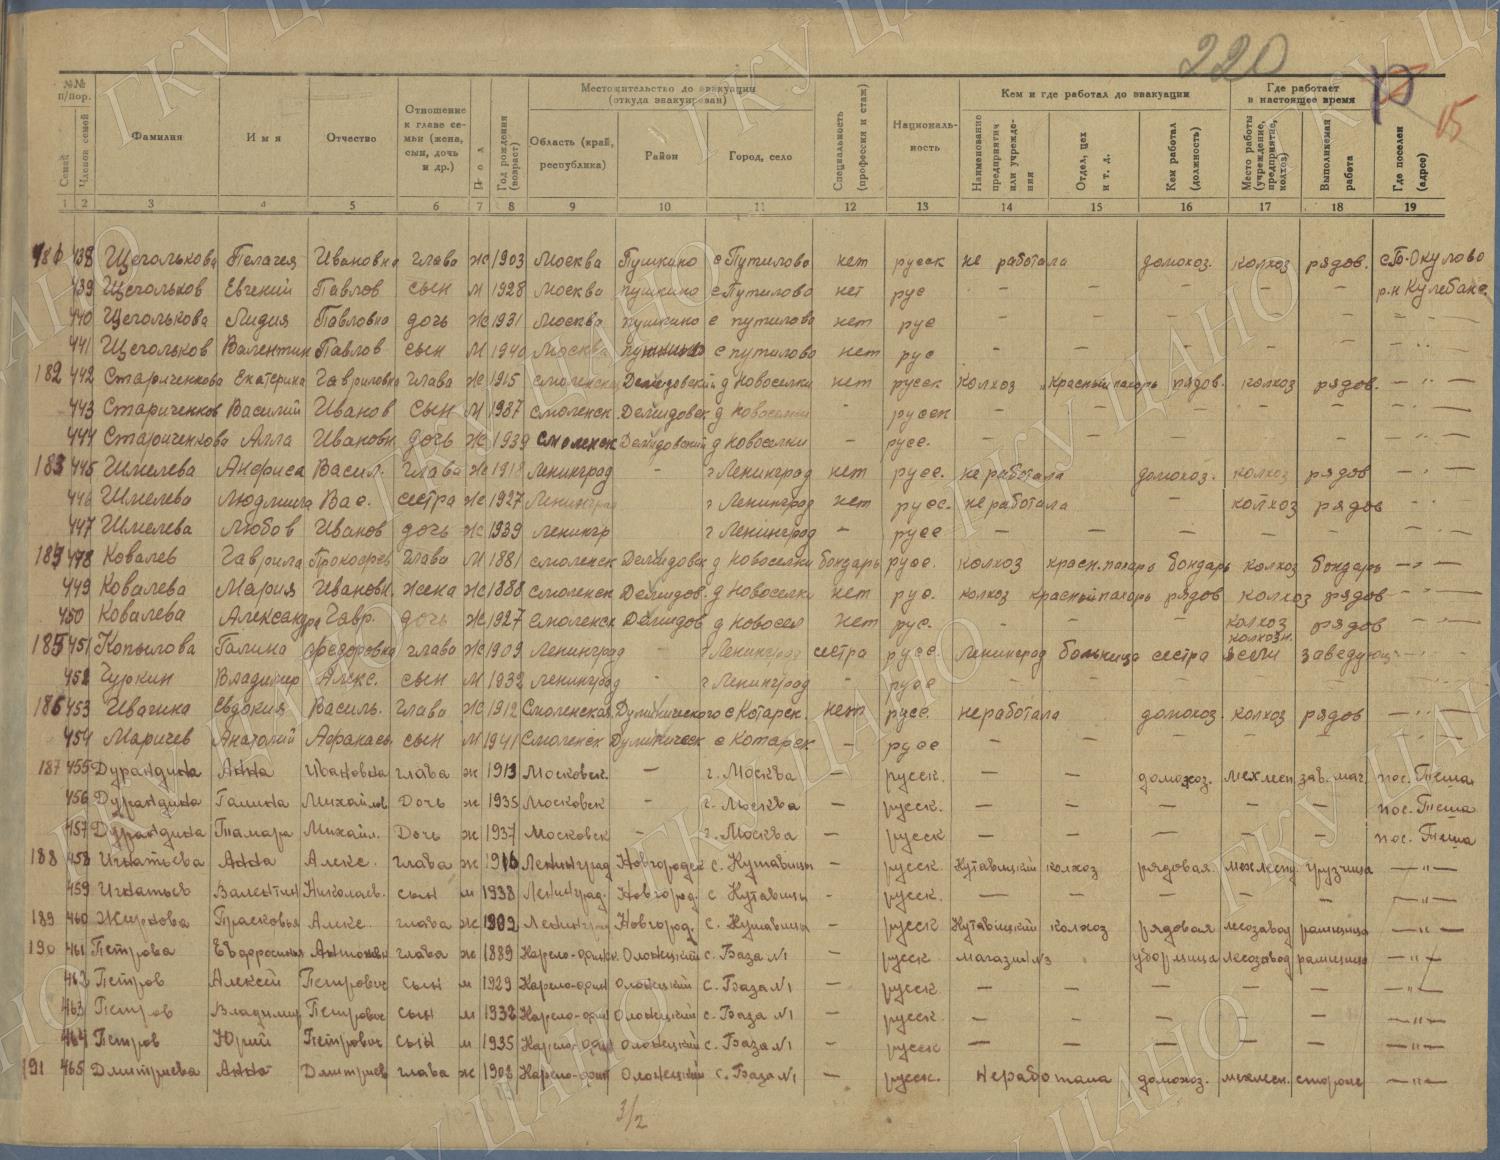 220
15
№№ п/пор.
Семей
Членов семей
Фамилия
Имя
Отчество
Отношение к главе семьи (жена, сын, дочь и др.)
Пол
Год рождения (возраст)
Местожительство до эвакуации (откуда эвакуирован)
Область (край, республика)
Район
Город, село
Специальность (профессия и стаж)
Националь-ность
Кем и где работал до эвакуации
Наименование предприятия или учрежде-ния
Отдел, цех и т. д.
Кем работал (должность)
Где работает в настоящее время
Место работы (учреждение, предприятие, колхоз)
Выполняемая работа
Где поселен (адрес)
1 2 3 4 5 6 7 8 9 10 11 12 13 14 15 16 17 18 19
438 Щеголькова Пелагея Ивановна глава ж 1903 Москва Пушкино с Путилово нет русск не работала домохоз. колхоз рядов. с Б-Окулово
439 Щегольков Евгений Павлов сын м 1928 Москва пушкино с Путилово нет рус — — — — — р.н Кулебакс.
440 Щеголькова Лидия Павловна дочь ж 1931 Москва пушкино с путилово нет рус — — — — — — " —
441 Щегольков Валентин Павлов сын м 1940 Москва пушкино с путилово нет рус — — — — — — " —
182 442 Стариченкова Екатерина Гавриловна глава ж 1915 смоленск Демидовский д Новоселки нет русск колхоз Красный пахарь рядов. колхоз рядов. — " —
443 Стариченков Василий Иванов сын м 1937 смоленск. Демидовск д Новоселки — русск — — — — — — " —
444 Стариченкова Алла Ивановн дочь ж 1939 смоленск Демидовский д Новоселки — русс. — — — — — — " —
183 445 Шмелева Анфиса Васил. глава ж 1918 Ленинград — г Ленинград нет русс. не работала домохоз. колхоз рядов — " —
446 Шмелева Людмила Вас. сестра ж 1927 Ленинград г Ленинград нет русс. не работала — колхоз рядов — " —
447 Шмелева Любовь Иванов дочь ж 1939 Ленингр г Ленинград — русс — — — — — — " —
184 448 Ковалев Гаврила Прокофьев глава м 1881 смоленск Демидовск д Новоселки бондарь русс. колхоз красн.пахарь бондарь колхоз бондарь — " —
449 Ковалева Мария Ивановн. жена ж 1888 смоленск Демидов. д Новоселки нет рус. колхоз красный пахарь рядов колхоз рядов — " —
450 Ковалева Александра Гавр. дочь ж 1927 смоленск Демидов д Новосел нет рус. — — — колхоз рядов — " —
185 451 Копылова Галина Федоровна глава ж 1909 Ленинград — г Ленинград сестра русс. Ленинград больница сестра колхозн. ясли заведующ. — " —
452 Чуркин Владимир Алекс. сын м 1932 Ленинград — г Ленинград — русс — — — — — — " —
186 453 Ивагина Евдокия Василь. глава ж 1912 Смоленская Думиничского с Котарск. нет русс. не работала домохоз. колхоз рядов — " —
454 Маричев Анатолий Афанасьев сын м 1941 Смоленск Думиническ с Котарск — русс — — — — — — " —
187 455 Дурандина Анна Ивановна глава ж 1913 Московск. — г. Москва — русск. — — домохоз. мехлесп зав. маг. пос. Теша
456 Дурандина Галина Михайлов Дочь ж 1935 Московск — г. Москва — русск. — — — — — пос. Теша
457 Дурандина Тамара Михайл. Дочь ж 1937 Московск — г. Москва — русск — — — — — пос. Теша
188 458 Игнатьева Анна Алекс. глава ж 1910 Ленинград Новгородск с. Кутавицы — русск. Кутавицкий колхоз рядовая мехлесп грузчица — " —
459 Игнатьев Валентин Николаев. сын м 1938 Ленинград. Новгород. с Кутавицы — русск. — — — — — — " —
189 460 Жирнова Прасковья Алекс. глава ж 1902 Ленинград Новгород. с. Кутавицы — русск Кутавицкий колхоз рядовая лесозавод рамщица — " —
190 461 Петрова Евфросинья Антоновн глава ж 1889 Карело-финск. Олонецкий с. База №1 — русск магазин №3 уборщица лесозавод рамщица — " —
462 Петров Алексей Петрович сын м 1929 Карело-фин Олонецкий с. База №1 — русск — — — — — — " —
463 Петров Владимир Петрович сын м 1932 Карело-фин Олонецкий с. База №1 — русск. — — — — — — " —
464 Петров Юрий Петрович сын м 1935 Карело-фин Олонецкий с. База №1 — русск — — — — — — " —
191 465 Дмитриева Анна Дмитриев глава ж 1902 Карело-фин Олонецкий с. База №1 — русск. Не работала домохоз. мехлесп. сторож — " —
3/2
ГКУ ЦАНО